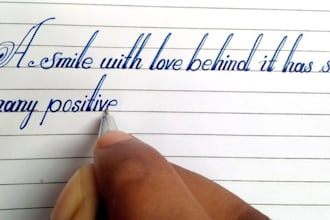 A smile with love behind it has s
many positive